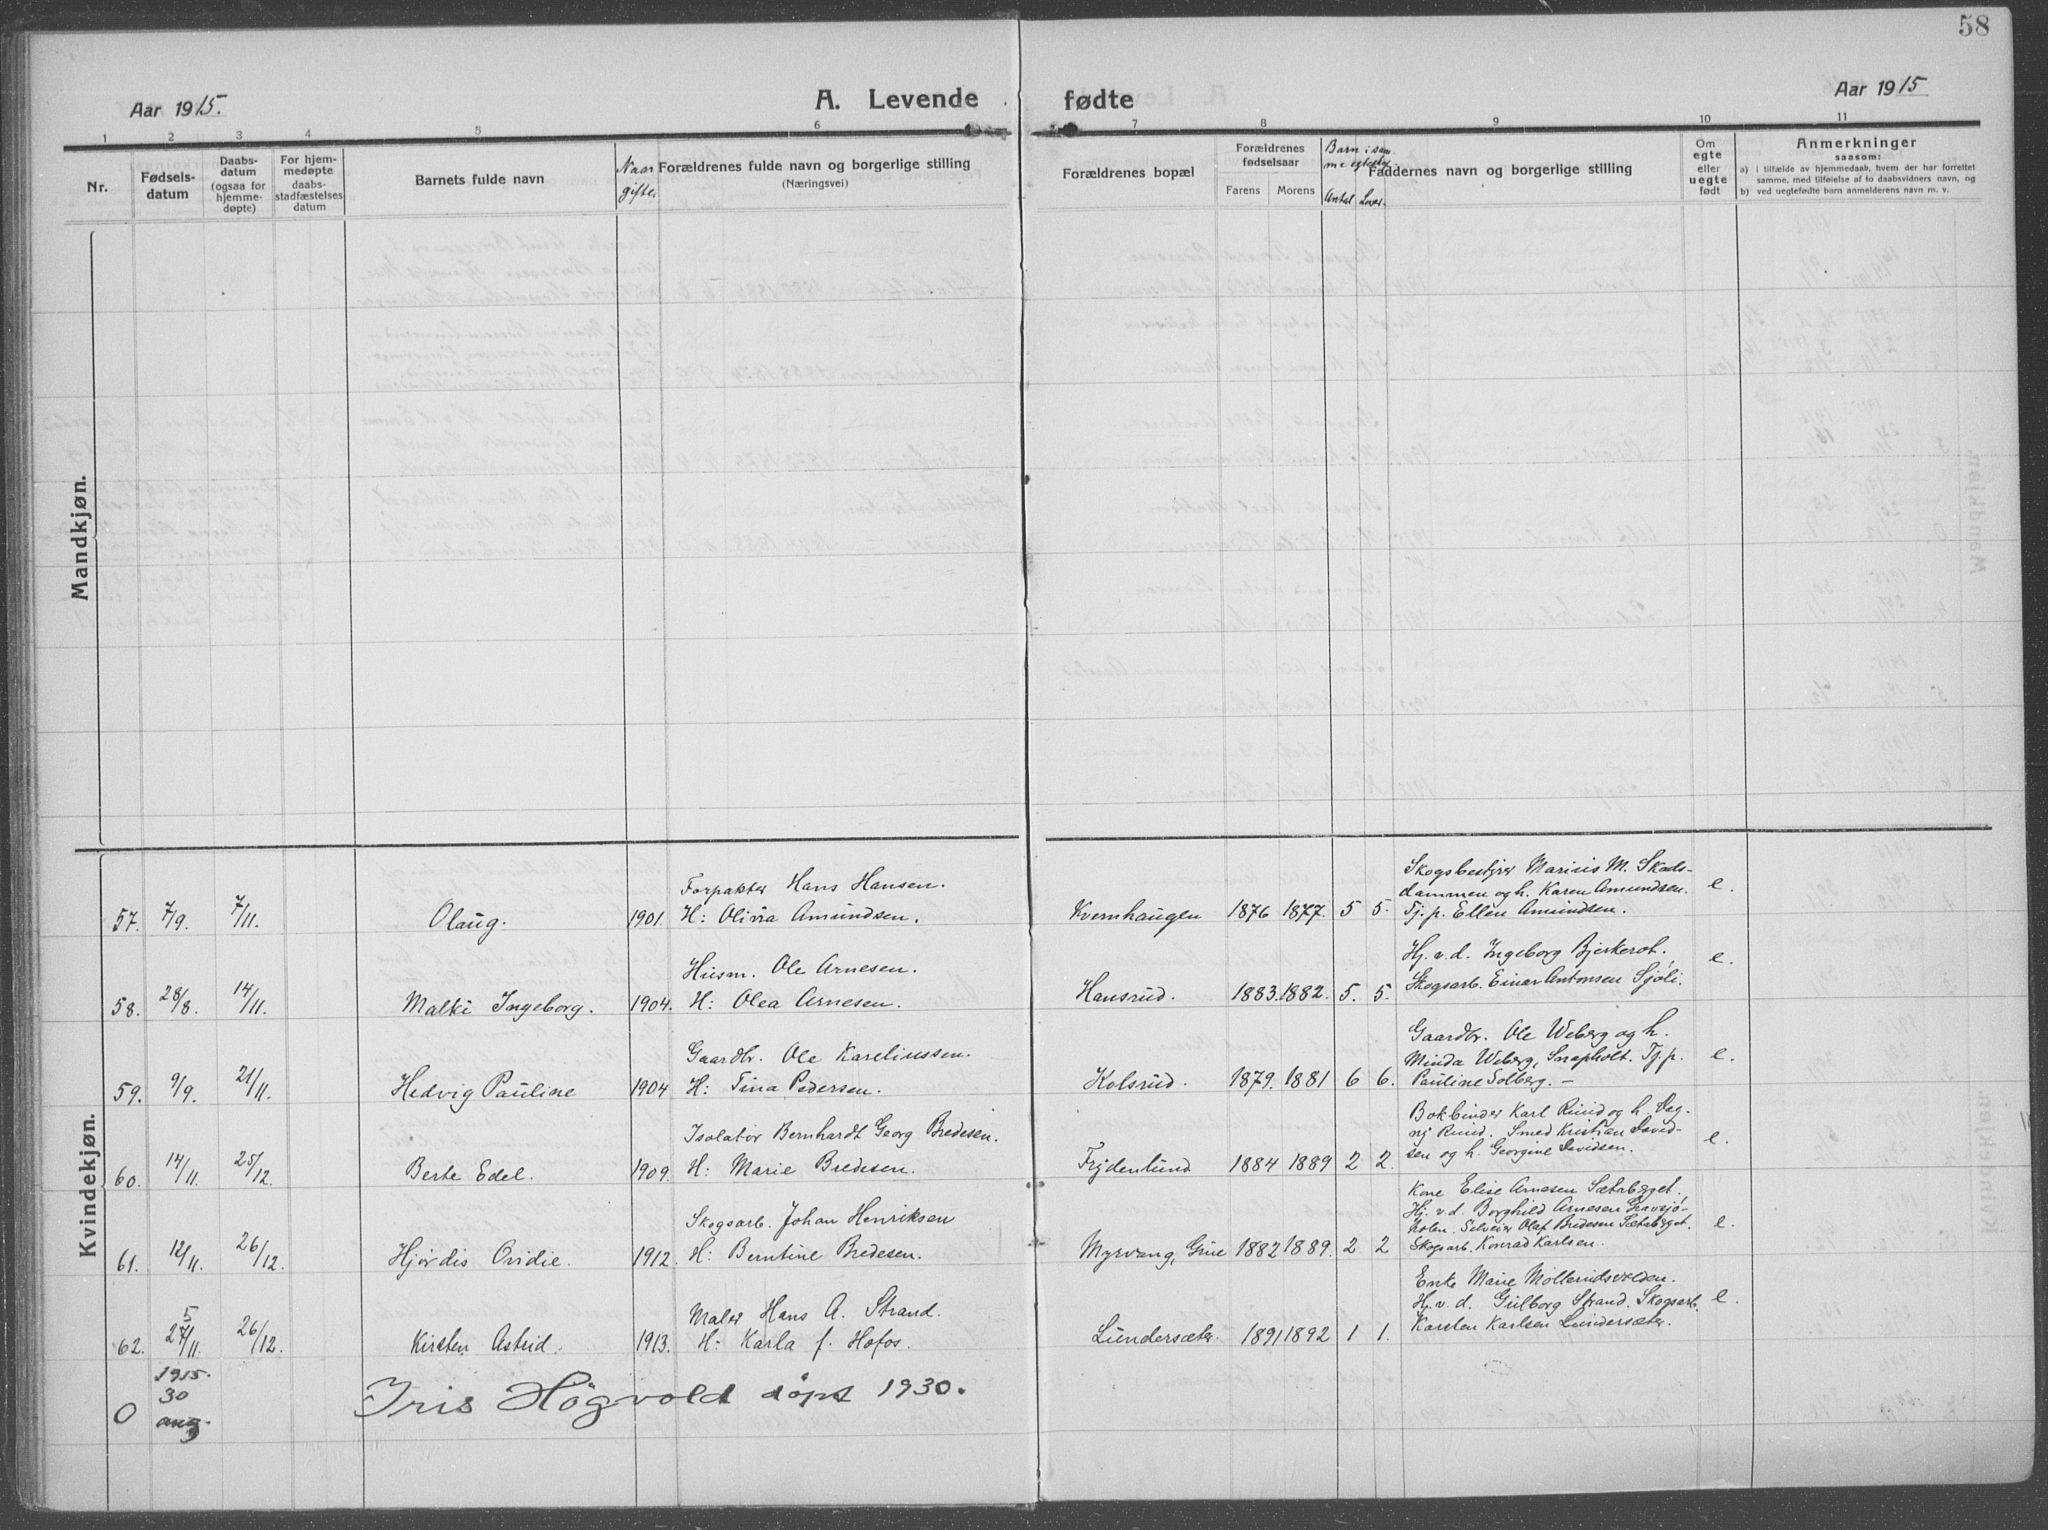 58
Aar 1915.
A. Levende fødte
Aar 1915
1 2 3 4 5 6 7 8 9 10 11
Nr.
Fødsels-
datum
Daabs-
datum
(ogsaa for
hjemme-
døpte)
For hjem-
medøpte
daabs-
stadfæstelses
datum
Barnets fulde navn
Naar
gifte.
Forældrenes fulde navn og borgerlige stilling
(Næringsvei)
Forældrenes bopæl
Forældrenes
fødselsaar
Farens Morens
Barn i sam-
me egteskab
Antal Lever
Faddernes navn og borgerlige stilling
Om
egte
eller
uegte
født
Anmerkninger
saasom:
a) i tilfælde av hjemmedaab, hvem der har forrettet
samme, med tilføielse af to daabsvidners navn, og
b) ved uegtefødte barn anmelderens navn m. v.
Mandkjøn.
Kvindekjøn.
Forpakter Hans Hansen.
57. 7/9. 7/11. Olaug. 1901. H: Olivia Amundsen. Kvernhaugen 1876 1877. 5 5.
Skogsbestyrer Marius M. Skads-
dammen og h. Karen Amundsen. e.
Tj. p. Ellen Amundsen.
Husm. Ole Arnesen.
58. 28/8. 14/11. Malki Ingeborg. 1904. H: Olea Arnesen. Hansrud. 1883. 1882. 5. 5.
Hj. v. d. Ingeborg Bjerkerot, e.
Skogsarb. Einar Antonsen Sjöli.
Gaardbr. Ole Kareliussen.
59. 9/9. 21/11. Hedvig Pauline 1904 H: Tina Pedersen. Kolsrud. 1879. 1881 6 6.
Gaardbr. Ole Weberg og h.
Minda Weberg, Snapholt. Tj. p. e.
Pauline Solberg. —
Isolatör Bernhardt Georg Bredesen.
60. 14/11. 25/12. Berte Edel. 1909. H: Marie Bredesen. Frydenlund 1884 1889 2 2.
Bokbinder Karl Ruud og h. Dag-
ny Ruud. Smed Kristian David- e.
sen og h. Georgine Davidsen.
Skogsarb. Johan Henriksen
61. 12/11. 26/12. Hjördis Ovidie. 1912. H: Berntine Bredesen. Myrvang, Grue 1882 1889. 2 2
Kone Elise Arnesen Sætaberget,
Hj. v. d. Borghild Arnesen
Olaf Bredesen Sætaberget. e.
Skogsarb. Konrad Karlsen.
Maler Hans A. Strand.
62. 27/11. 5 26/12. Kirsten Astrid. 1913. H: Karla f. Hofos. Lundersæter. 1891 1892 1 1.
Enke Marie Möllerudsvolden.
Hj. v. d. Gulborg Strand. Skogsarb. e.
Karsten Karlsen Lundersæter.
0 1915 30 aug. Iris Högvold döpt 1930.